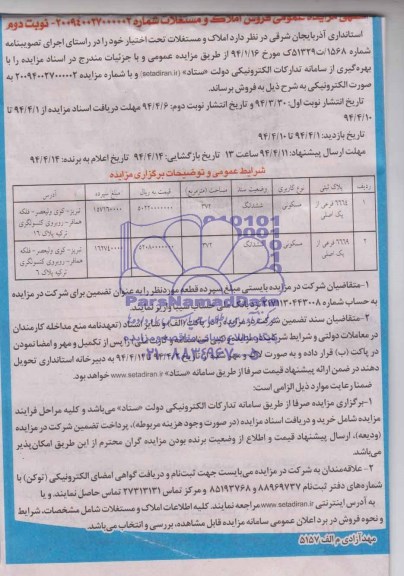 آگهی مزایده عمومی فروش املاک و مستغلات شماره ۲۰۰۹۴۰۰۲۷۰۰۰۰۰۲- نوبت دوم
استانداری آذربایجان شرقی در نظر دارد املاک و مستغلات تحت اختیار خود را در راستای اجرای تصویبنامه
شماره ۱۵۶۸/ت۵۱۳۲۹ک مورخ ۹۴/۱/۱۶ از طریق مزایده عمومی و با جزئیات مندرج در اسناد مزایده را با
بهره‌گیری از سامانه تدارکات الکترونیکی دولت «ستاد» (setadiran.ir) و با شماره مزایده ۲۰۰۹۴۰۰۲۷۰۰۰۰۰۲
به صورت الکترونیکی به شرح ذیل به فروش برساند.
تاریخ انتشار نوبت اول: ۹۴/۳/۳۰ و تاریخ انتشار نوبت دوم: ۹۴/۴/۶ مهلت دریافت اسناد مزایده از ۹۴/۴/۱ تا
۹۴/۴/۱۰
تاریخ بازدید: ۹۴/۴/۱ تا ۹۴/۴/۱۰
مهلت ارسال پیشنهاد: ۹۴/۴/۱۱ ساعت ۱۳ تاریخ بازگشایی: ۹۴/۴/۱۴ تاریخ اعلام به برنده: ۹۴/۴/۱۴
شرایط عمومی و توضیحات برگزاری مزایده
ردیف پلاک ثبتی نوع کاربری وضعیت سند مساحت (مترمربع) قیمت به ریال مبلغ سپرده آدرس
۱ ۶۶۶۴ فرعی از یک اصلی مسکونی ششدانگ ۳۷۲ تبریز- کوی ولیعصر- فلکه همافر- روبروی کنسولگری ترکیه پلاک ۱۶
۲ ۶۶۶۸ فرعی از یک اصلی مسکونی ششدانگ ۳۷۲ تبریز- کوی ولیعصر- فلکه همافر- روبروی کنسولگری ترکیه پلاک ۶
ParsNamadData
۰۲۱-۸۸۳۴۹۶۷۰-۵
۱-متقاضیان شرکت در مزایده بایستی مبلغ سپرده قطعه موردنظر را به عنوان تضمین برای شرکت در مزایده
به حساب شماره
۲-متقاضیان سند تضمین شرکت در مزایده را در پاکت (الف) و سایر اسناد (تعهدنامه منع مداخله کارمندان
در معاملات دولتی و شرایط شرکت در مزایده) را پس از تکمیل و مهر و امضا نمودن
در پاکت (ب) قرار داده و به صورت به دبیرخانه استانداری تحویل
دهند در ضمن ارائه پیشنهاد قیمت صرفا از طریق سامانه «ستاد» www.setadiran.ir خواهد بود.
ضمنا رعایت موارد ذیل الزامی است:
۱-برگزاری مزایده صرفا از طریق سامانه تدارکات الکترونیکی دولت «ستاد» می‌باشد و کلیه مراحل فرایند
مزایده شامل خرید و دریافت اسناد مزایده (در صورت وجود هزینه مربوطه)، پرداخت تضمین شرکت در مزایده
(ودیعه)، ارسال پیشنهاد قیمت و اطلاع از وضعیت برنده بودن مزایده گران محترم از این طریق امکان‌پذیر
می‌باشد.
۲- علاقه‌مندان به شرکت در مزایده می‌بایست جهت ثبت‌نام و دریافت گواهی امضای الکترونیکی (توکن) با
شماره‌های دفتر ثبت‌نام ۸۸۹۶۹۷۳۷ و ۸۵۱۹۳۷۶۸ و مرکز تماس ۲۷۳۱۳۱۳۱ تماس حاصل نمایند، و یا
به آدرس اینترنتی www.setadiran.ir مراجعه نمایند. کلیه اطلاعات املاک و مستغلات شامل مشخصات، شرایط
و نحوه فروش در برد اعلان عمومی سامانه مزایده قابل مشاهده، بررسی و انتخاب می‌باشد.
مهد آزادی م الف ۵۱۵۷